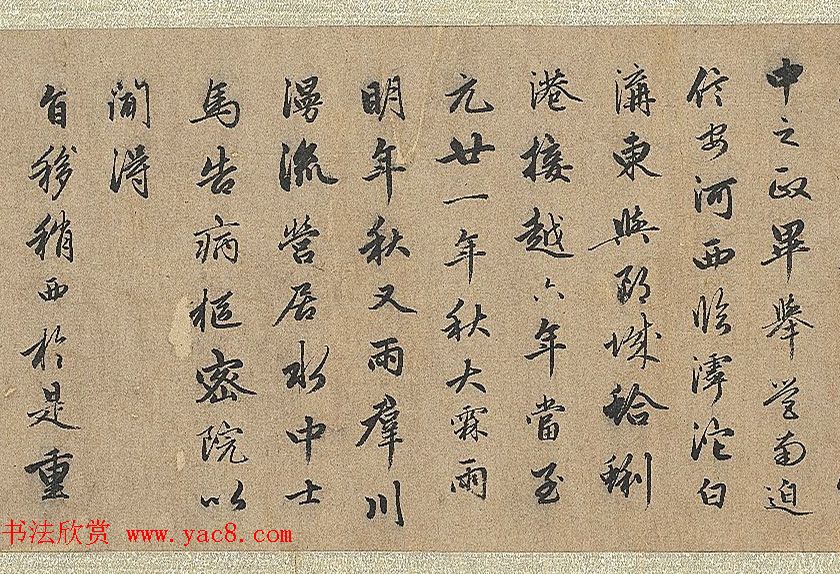 中之政畢舉營南迫
信安河西臨滹沱白
溝東與郎城蛤蜊
港接越六年當至
元廿一年秋大霖雨
明年秋又雨羣川
漫流營居水中士
馬告病樞密院以
聞得
旨移稍西於是重
书法欣赏 www.yac8.com